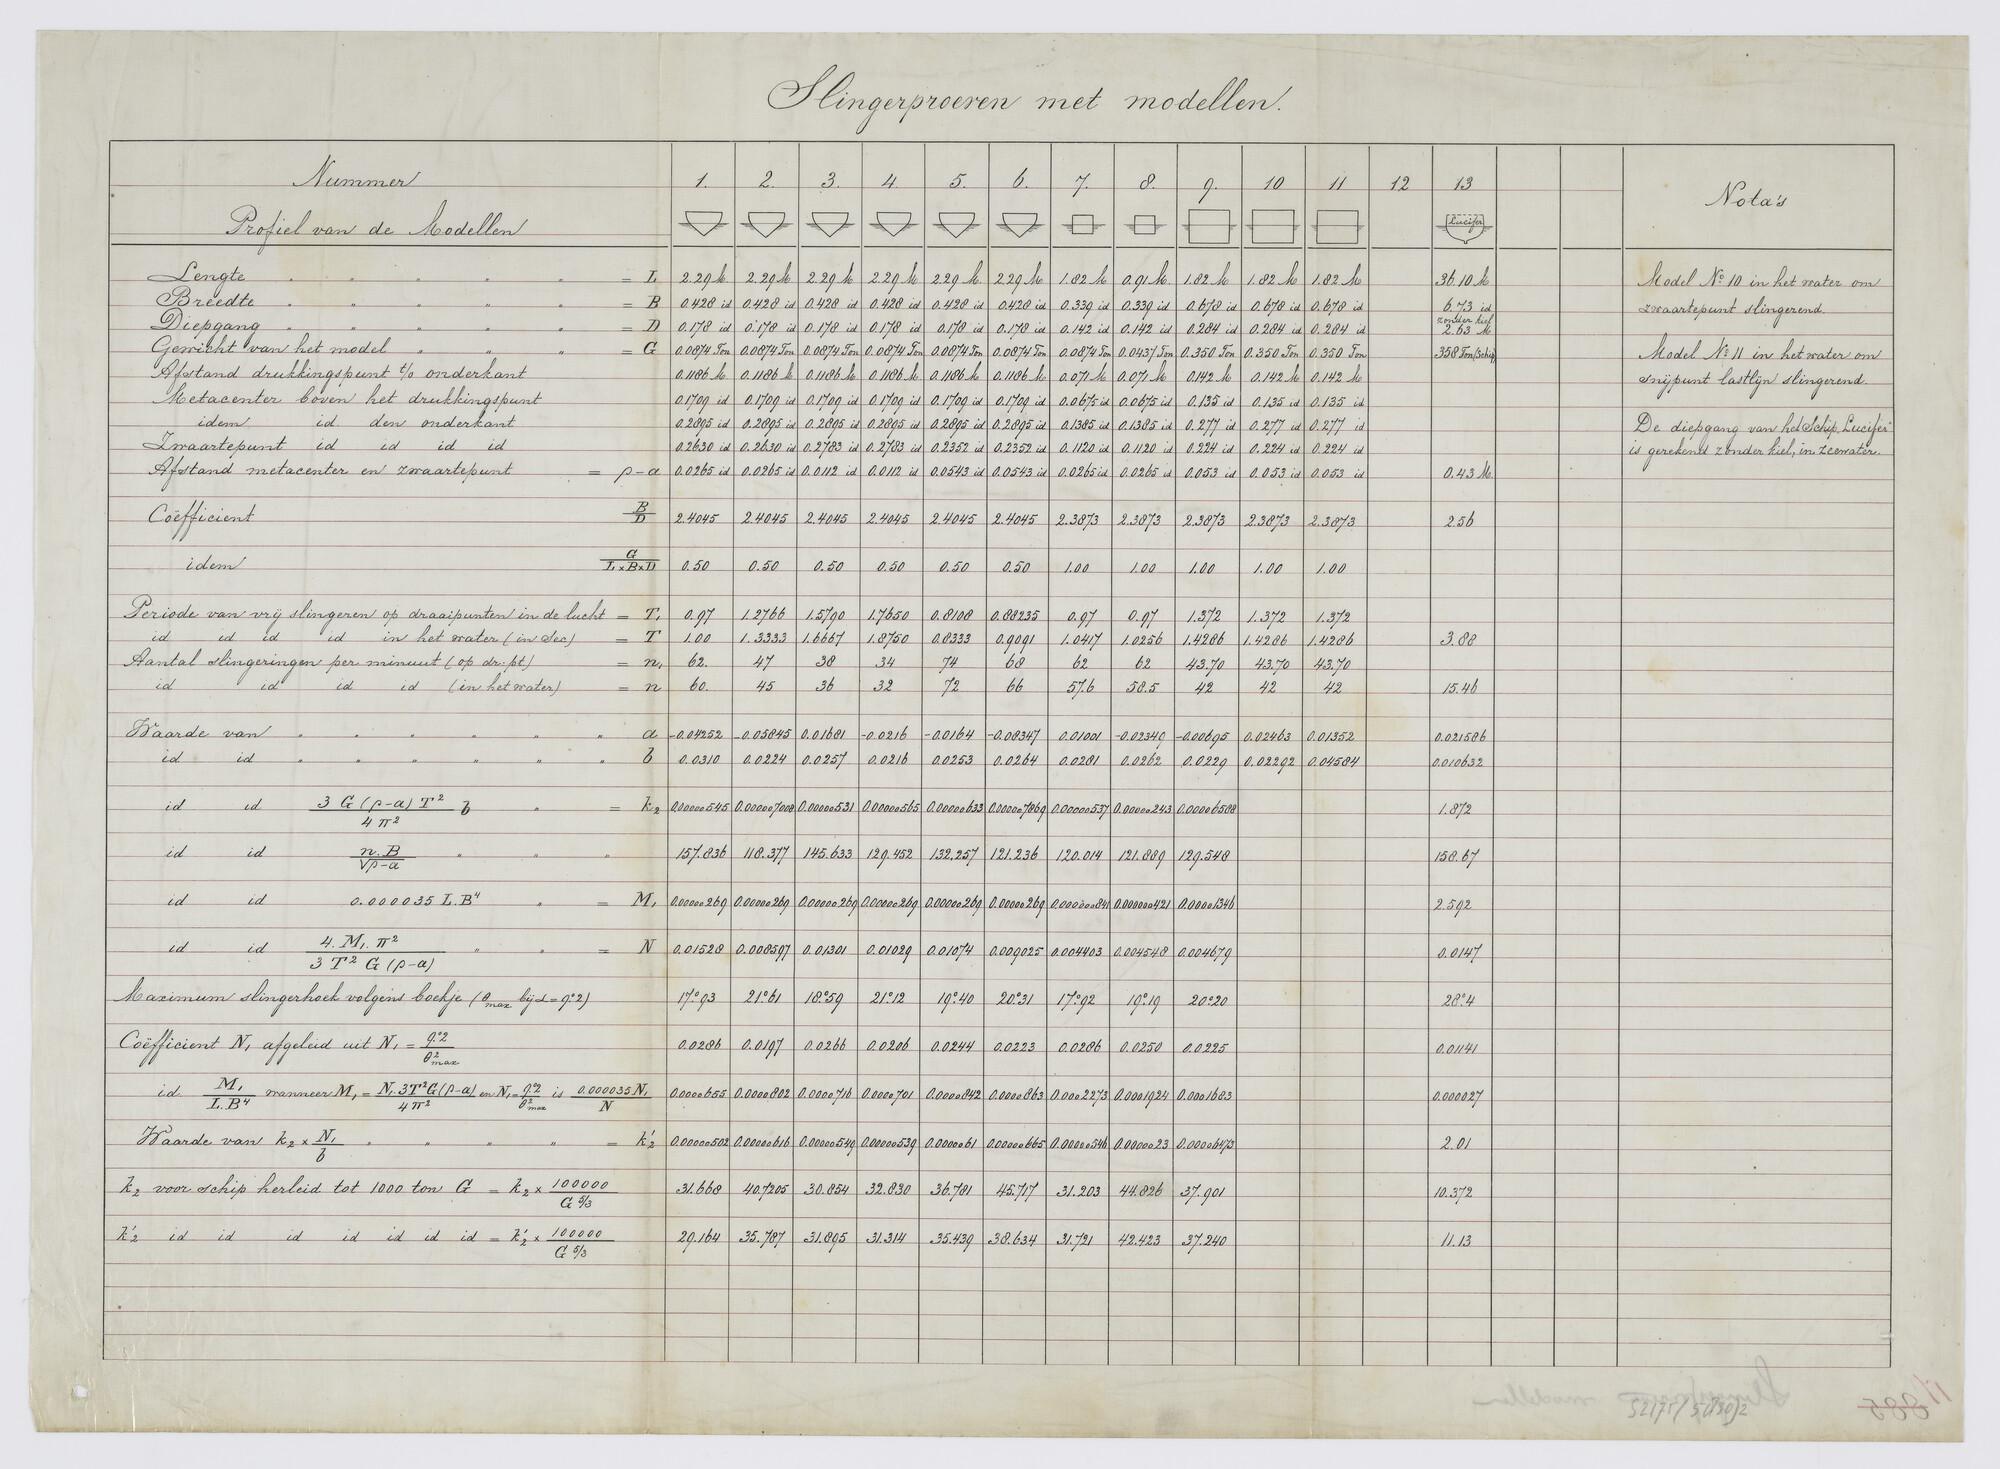 Slingerproeven met modellen.
Nummer 1. 2. 3. 4. 5. 6. 7. 8. 9. 10 11 12 13 Nota's
Profiel van de Modellen Lucifer
Lengte = L 2.29 M 2.29 M 2.29 M 2.29 M 2.29 M 2.29 M 1.82 M 0.91 M 1.82 M 1.82 M 1.82 M 36.10 M
Breedte = B 0.428 id 0.428 id 0.428 id 0.428 id 0.428 id 0.428 id 0.339 id 0.339 id 0.678 id 0.678 id 0.678 id 6.73 id
Diepgang = D 0.178 id 0.178 id 0.178 id 0.178 id 0.178 id 0.178 id 0.142 id 0.142 id 0.284 id 0.284 id 0.284 id zonder kiel 2.63 M
Gewicht van het model = G 0.0874 Ton 0.0874 Ton 0.0874 Ton 0.0874 Ton 0.0874 Ton 0.0874 Ton 0.0874 Ton 0.0437 Ton 0.350 Ton 0.350 Ton 0.350 Ton 358 Ton (Schip)
Afstand drukkingspunt t/o onderkant 0.1186 M 0.1186 M 0.1186 M 0.1186 M 0.1186 M 0.1186 M 0.071 M 0.071 M 0.142 M 0.142 M 0.142 M
Metacenter boven het drukkingspunt 0.1709 id 0.1709 id 0.1709 id 0.1709 id 0.1709 id 0.1709 id 0.0675 id 0.0675 id 0.135 id 0.135 id 0.135 id
idem id. den onderkant 0.2895 id 0.2895 id 0.2895 id 0.2895 id 0.2895 id 0.2895 id 0.1385 id 0.1385 id 0.277 id 0.277 id 0.277 id
Zwaartepunt id id id id 0.2630 id 0.2630 id 0.2783 id 0.2783 id 0.2352 id 0.2352 id 0.1120 id 0.1120 id 0.224 id 0.224 id 0.224 id
Afstand metacenter en zwaartepunt = ρ-a 0.0265 id 0.0265 id 0.0112 id 0.0112 id 0.0543 id 0.0543 id 0.0265 id 0.0265 id 0.053 id 0.053 id 0.053 id 0.43 M
Coëfficient B/D 2.4045 2.4045 2.4045 2.4045 2.4045 2.4045 2.3873 2.3873 2.3873 2.3873 2.3873 2.56
idem G/L×B×D 0.50 0.50 0.50 0.50 0.50 0.50 1.00 1.00 1.00 1.00 1.00
Periode van vrij slingeren op draaipunten in de lucht = T₁ 0.97 1.2766 1.5790 1.7650 0.8108 0.88235 0.97 0.97 1.372 1.372 1.372
id id id id in het water (in Sec) = T 1.00 1.3333 1.6667 1.8750 0.8333 0.9091 1.0417 1.0256 1.4286 1.4286 1.4286 3.88
Aantal slingeringen per minuut (op dr. pt) = n₁ 62. 47 38 34 74 68 62 62 43.70 43.70 43.70
id id id id (in het water) = n 60. 45 36 32 72 66 57.6 58.5 42 42 42 15.46
Waarde van a -0.04252 -0.05845 0.01681 -0.0216 -0.0164 -0.08347 0.01001 -0.02349 -0.00695 0.02463 0.01352 0.021586
id id b 0.0310 0.0224 0.0257 0.0216 0.0253 0.0264 0.0281 0.0262 0.0229 0.02292 0.04584 0.010632
id id 3 G (ρ-a) T² / 4 π² b = k₂ 0.00000545 0.000007008 0.00000531 0.00000565 0.00000633 0.000007869 0.00000537 0.00000243 0.00006588 1.872
id id n.B / √ρ-a 157.836 118.377 145.633 129.452 132.257 121.236 120.014 121.889 129.548 158.67
id id 0.000035 L.B⁴ = M₁ 0.00000269 0.00000269 0.00000269 0.00000269 0.00000269 0.00000269 0.000000841 0.000000421 0.00001346 2.592
id id 4. M₁. π² / 3 T² G (ρ-a) = N 0.01528 0.008597 0.01301 0.01029 0.01074 0.009025 0.004403 0.004548 0.004679 0.0147
Maximum slingerhoek volgens boekje (θmax bij α = 9°2) 17°.93 21°.61 18°.59 21°.12 19°.40 20°.31 17°.92 19°.19 20°.20 28°.4
Coëfficient N₁ afgeleid uit N₁ = 9°2 / θ²max 0.0286 0.0197 0.0266 0.0206 0.0244 0.0223 0.0286 0.0250 0.0225 0.01141
id. M₁ / L.B⁴ wanneer M₁ = N₁.3T²G(ρ-a) / 4π² en N₁ = 9°2 / θ²max is 0.000035 N₁ / N 0.0000655 0.0000802 0.0000716 0.0000701 0.0000842 0.0000863 0.0002273 0.0001924 0.0001683 0.000027
Waarde van k₂ × N₁ / b = k₂' 0.00000502 0.00000616 0.00000549 0.00000539 0.0000061 0.00000665 0.00000546 0.0000023 0.00006473 2.01
k₂ voor schip herleid tot 1000 ton G = k₂ × 100000 / G 5/3 31.668 40.7205 30.854 32.830 36.781 45.717 31.203 44.826 37.901 10.372
k₂' id id id id id id id = k₂' × 100000 / G 5/3 29.164 35.787 31.895 31.314 35.439 38.634 31.721 42.423 37.240 11.13
Model No 10 in het water om
zwaartepunt slingerend.
Model No 11 in het water om
snijpunt lastlijn slingerend.
De diepgang van het Schip "Lucifer"
is gerekend zonder kiel, in zeewater.